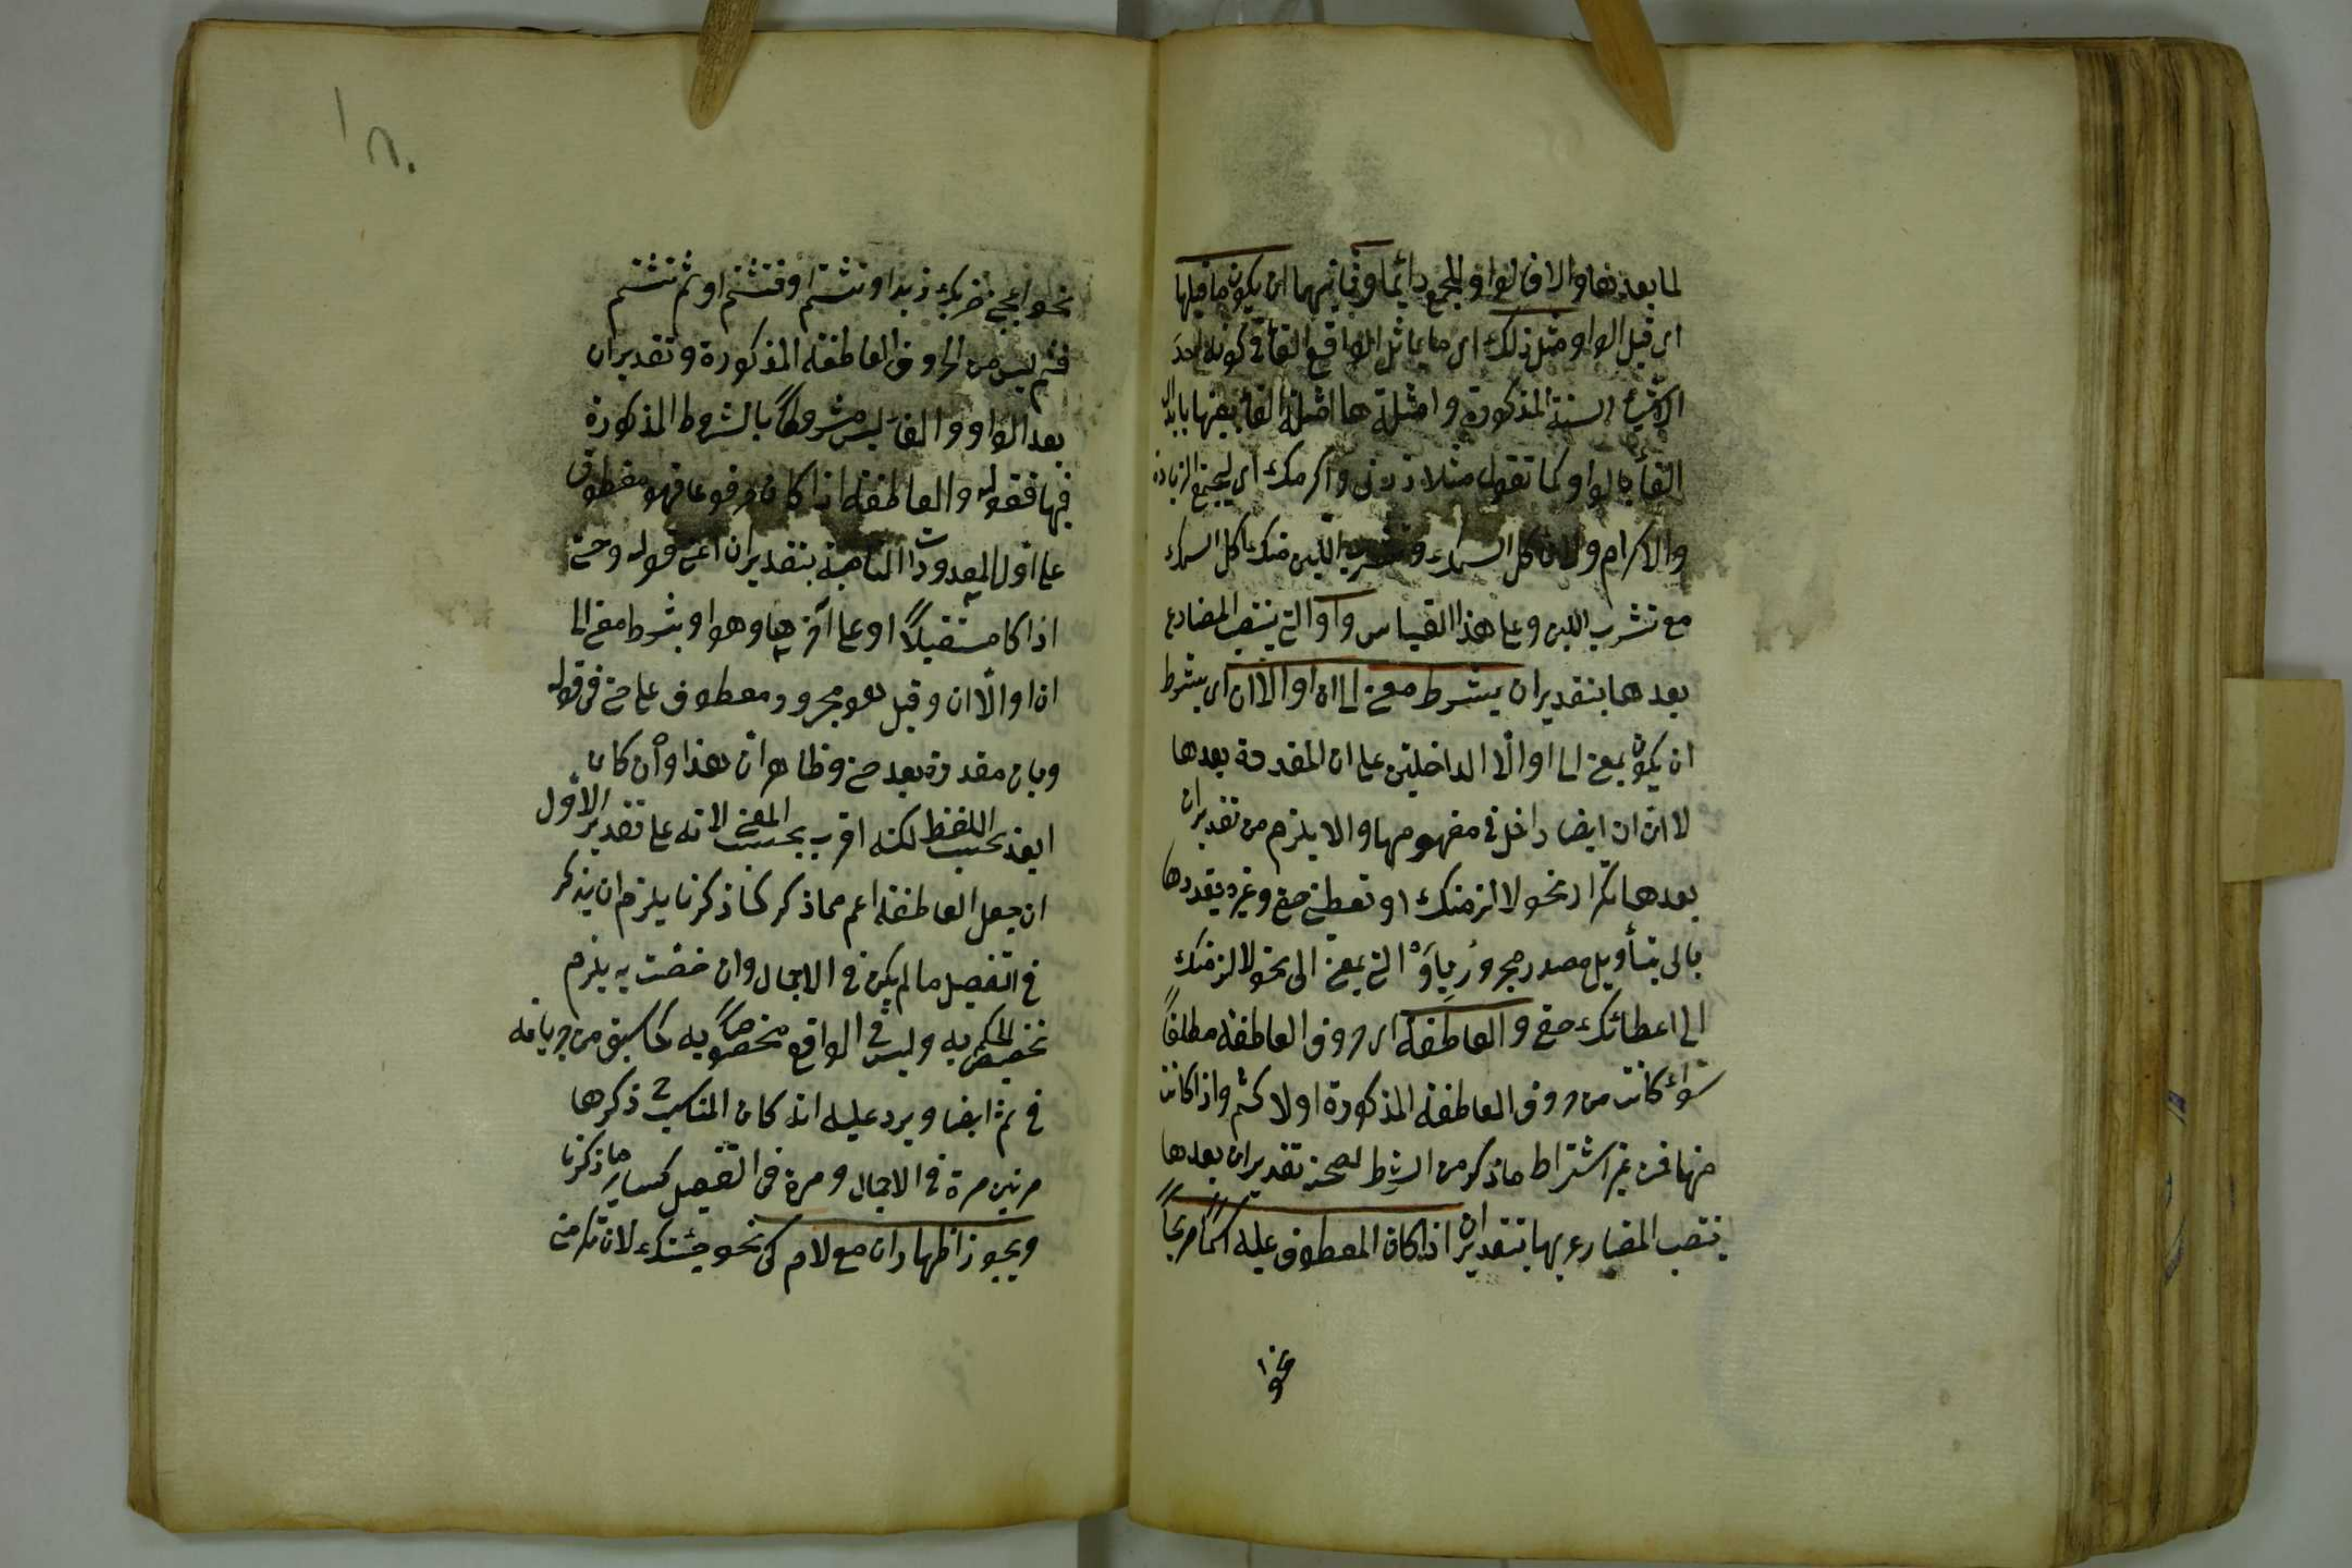 لما بعدها والا فالواو للجمع دائما وثانيهما ان يكون ما قبلها
اى قبل الواو مثل ذلك اى ما يماثل الواقع الفاء فى كونه احد
الاشياء الستة المذكورة وامثلتها امثلة الفاء بعينها بابدال
الفاء بالواو كما تقول مثلا زرنى واكرمك اى ليجتمع الزيادة
والاكرام ولا تاكل السمك وتشرب اللبن منك اكل السمك
مع تشرب اللبن وعلى هذا القياس واو التى ينتصب المضارع
بعدها بتقدير ان بشرط معنى الى ان او الا ان اى بشرط
ان يكون بمعنى الى او الا الداخلتين على ان المقدرة بعدها
لا ان ان ايضا داخل فى مفهومها والا يلزم من تقدير ان
بعدها تكرار نحو لالزمنك او تعطينى حقى وغيره يقدرها
بالى بتأويل مصدر مجرور باو التى بمعنى الى نحو لالزمنك
الى اعطائك حقى والعاطفة اى حروف العاطفة مطلقا
سواء كانت من حروف العاطفة المذكورة اولا كثم واذا كانت
منها فمن غير اشتراط ما ذكر من الشرط لصحة تقدير ان بعدها
ينتصب المضارع بها بتقدير ان اذا كان المعطوف عليه اسما صريحا
نحو
نحو اعجبنى ضربك زيدا وتشتم او فتشتم او ثم تشتم
فثم ليس من الحروف العاطفة المذكورة وتقدير ان
بعد الواو والفاء ليس مشروطا بالشروط المذكورة
فيها فقوله والعاطفة اذا كان مرفوعا فهو معطوف
على اول المعدودات الناصبة بتقدير ان اعنى قوله وحتى
اذا كا مستقبلا او على آخرها وهو او بشرط معنى الى
ان او الا ان وقيل هو مجرور معطوف على حتى فى قوله
وبان مقدرة بعد حتى وظاهر ان هذا وان كان
ابعد بحسب اللفظ لكنه اقرب بحسب المعنى لانه على تقدير الاول
ان جعل العاطفة اعم مما ذكر كما ذكرنا يلزم ان يذكر
فى التفصيل ما لم يكن فى الاجمال وان خصت به يلزم
تخصيص الحكم به وليس فى الواقع مخصوصا به كما سبق من جريانه
فى ثم ايضا ويرد عليه انه كان المناسب ح ذكرها
مرتين مرة فى الاجمال ومرة فى التفصيل كسائر ما ذكرنا
ويجوز اظهار ان مع لام كى نحو جئتك لان تكرمنى